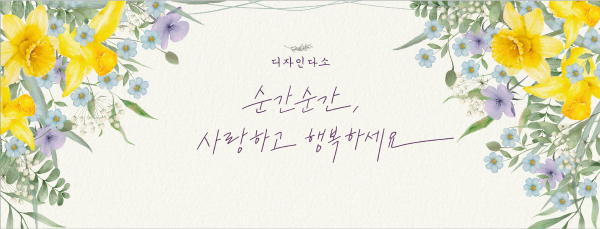 디자인다소
순간순간,
사랑하고 행복하세요